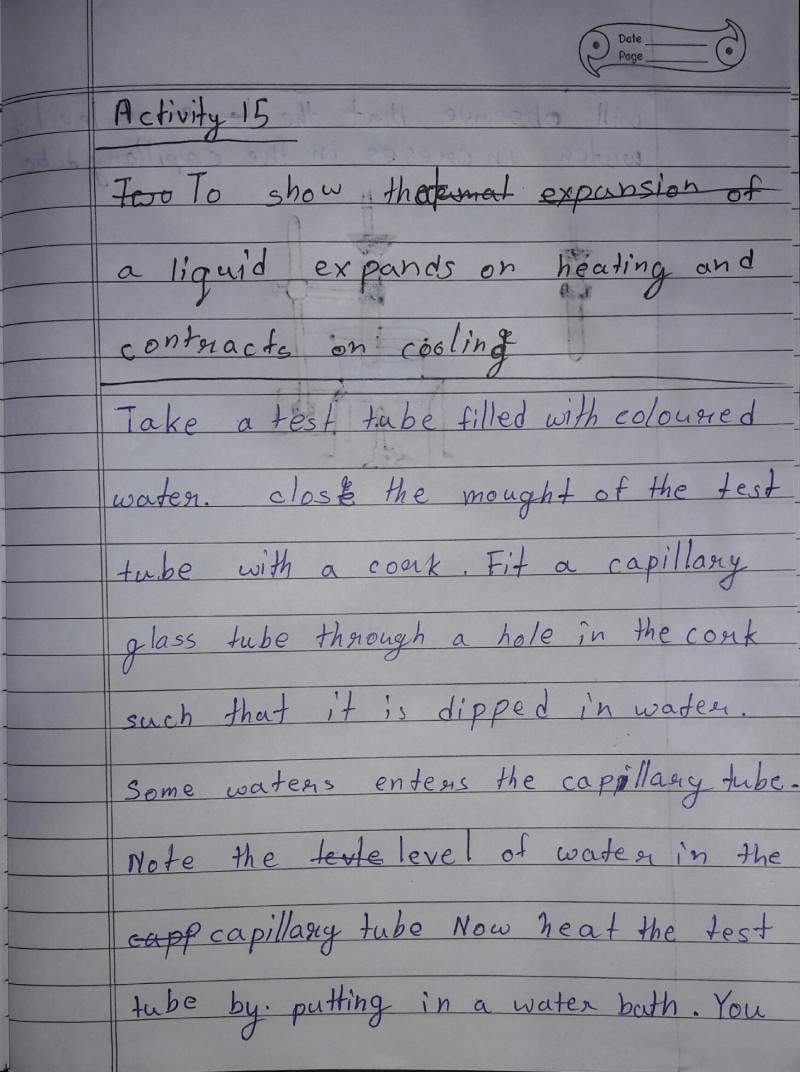 Date
Page
Activity 15
Two To show thermal expansion of
a liquid expands on heating and
contracts on cooling
Take a test tube filled with coloured
water. close the mought of the test
tube with a cork. Fit a capillary
glass tube through a hole in the cork
such that it is dipped in water.
Some waters enters the capillary tube.
Note the levle level of water in the
capp capillary tube Now heat the test
tube by. putting in a water bath. You